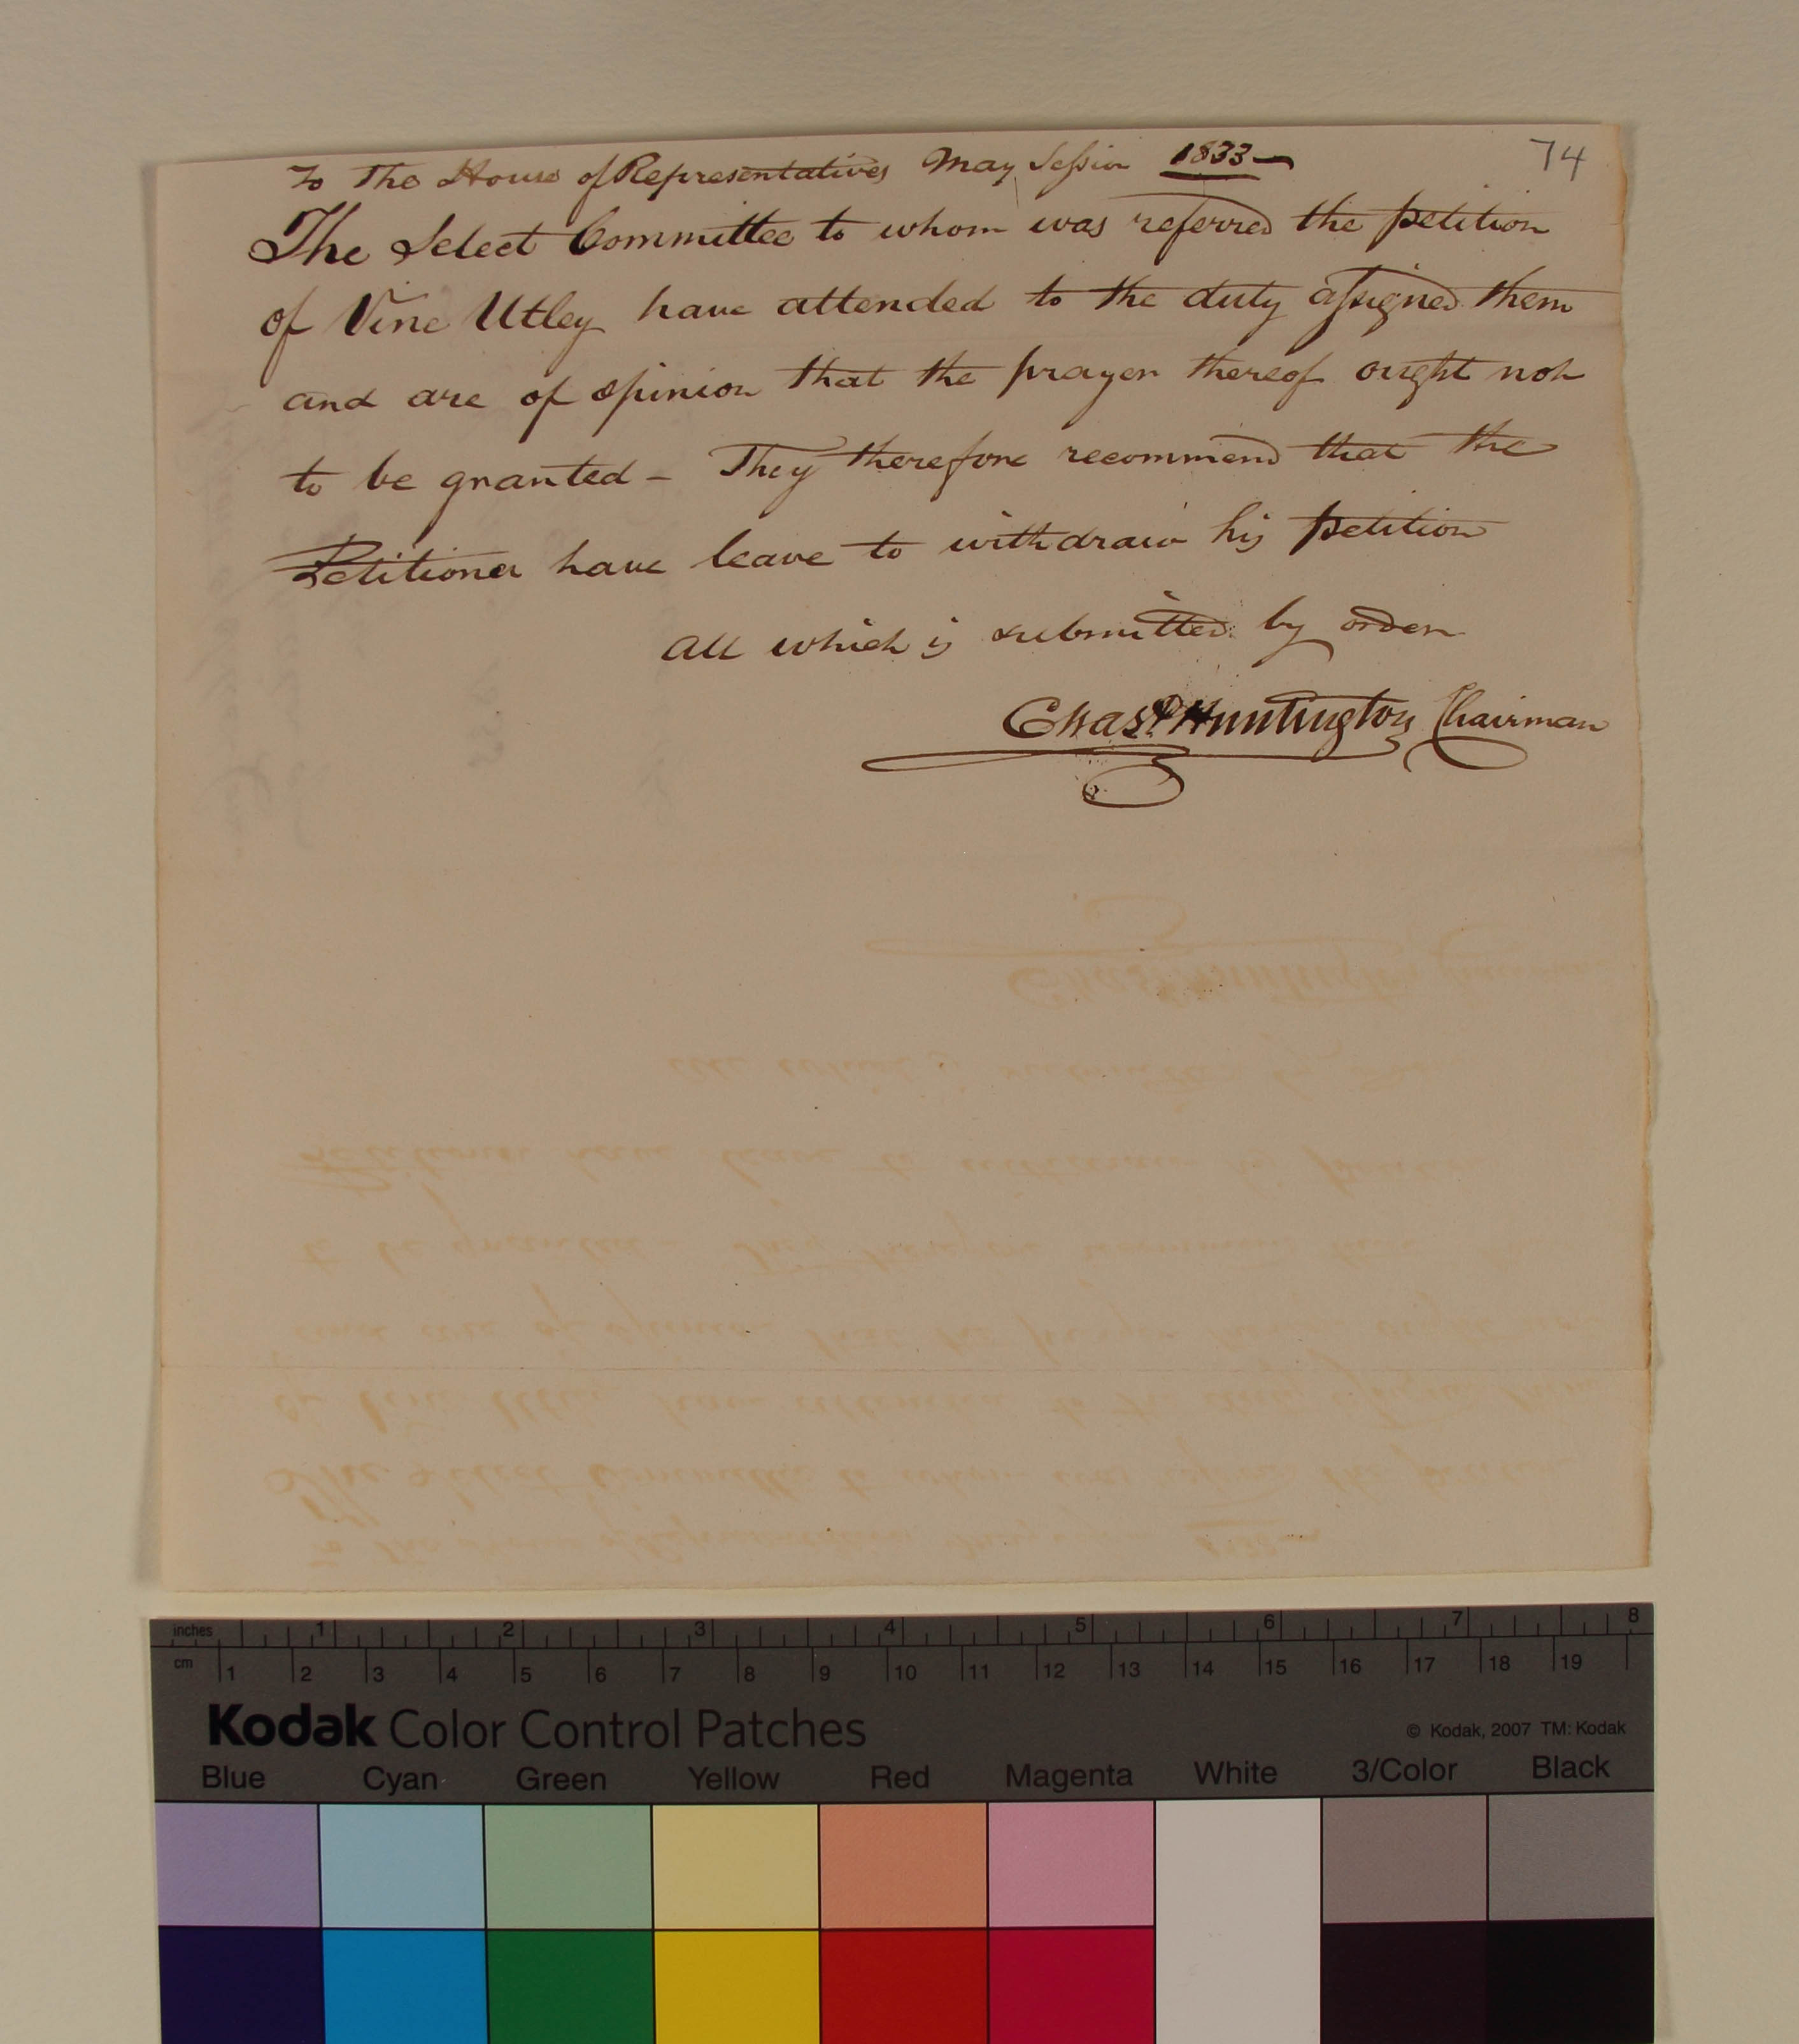 74
To The House of Representatives May Session 1833—
The Select Committee to whom was referred the petition
of Vine Utley have attended to the duty assigned them
and are of opinion that the prayer thereof ought not
to be granted — They therefore recommend that the
Petitioner have leave to withdraw his petition
All which is submitted by order
Chas P Huntington Chairman
inches 1 2 3 4 5 6 7 8
cm 1 2 3 4 5 6 7 8 9 10 11 12 13 14 15 16 17 18 19
Kodak Color Control Patches © Kodak, 2007 TM: Kodak
Blue Cyan Green Yellow Red Magenta White 3/Color Black